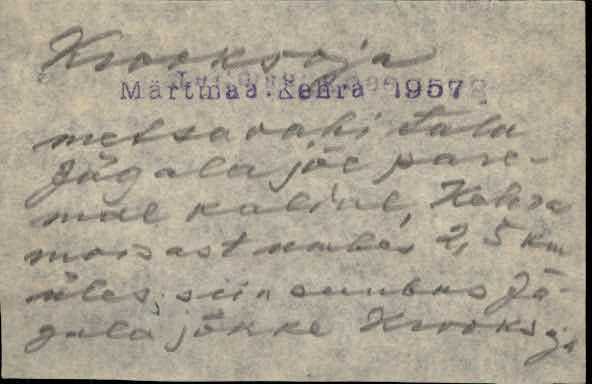 Krooksoja
Märtmaa. Kehra 1957
metsavahi talu
Jägala jõe pare-
mal kaldal, Kehra
moisast umbes 2,5 km
üles, siin suubus Jä-
gala jõkke Krooksoja